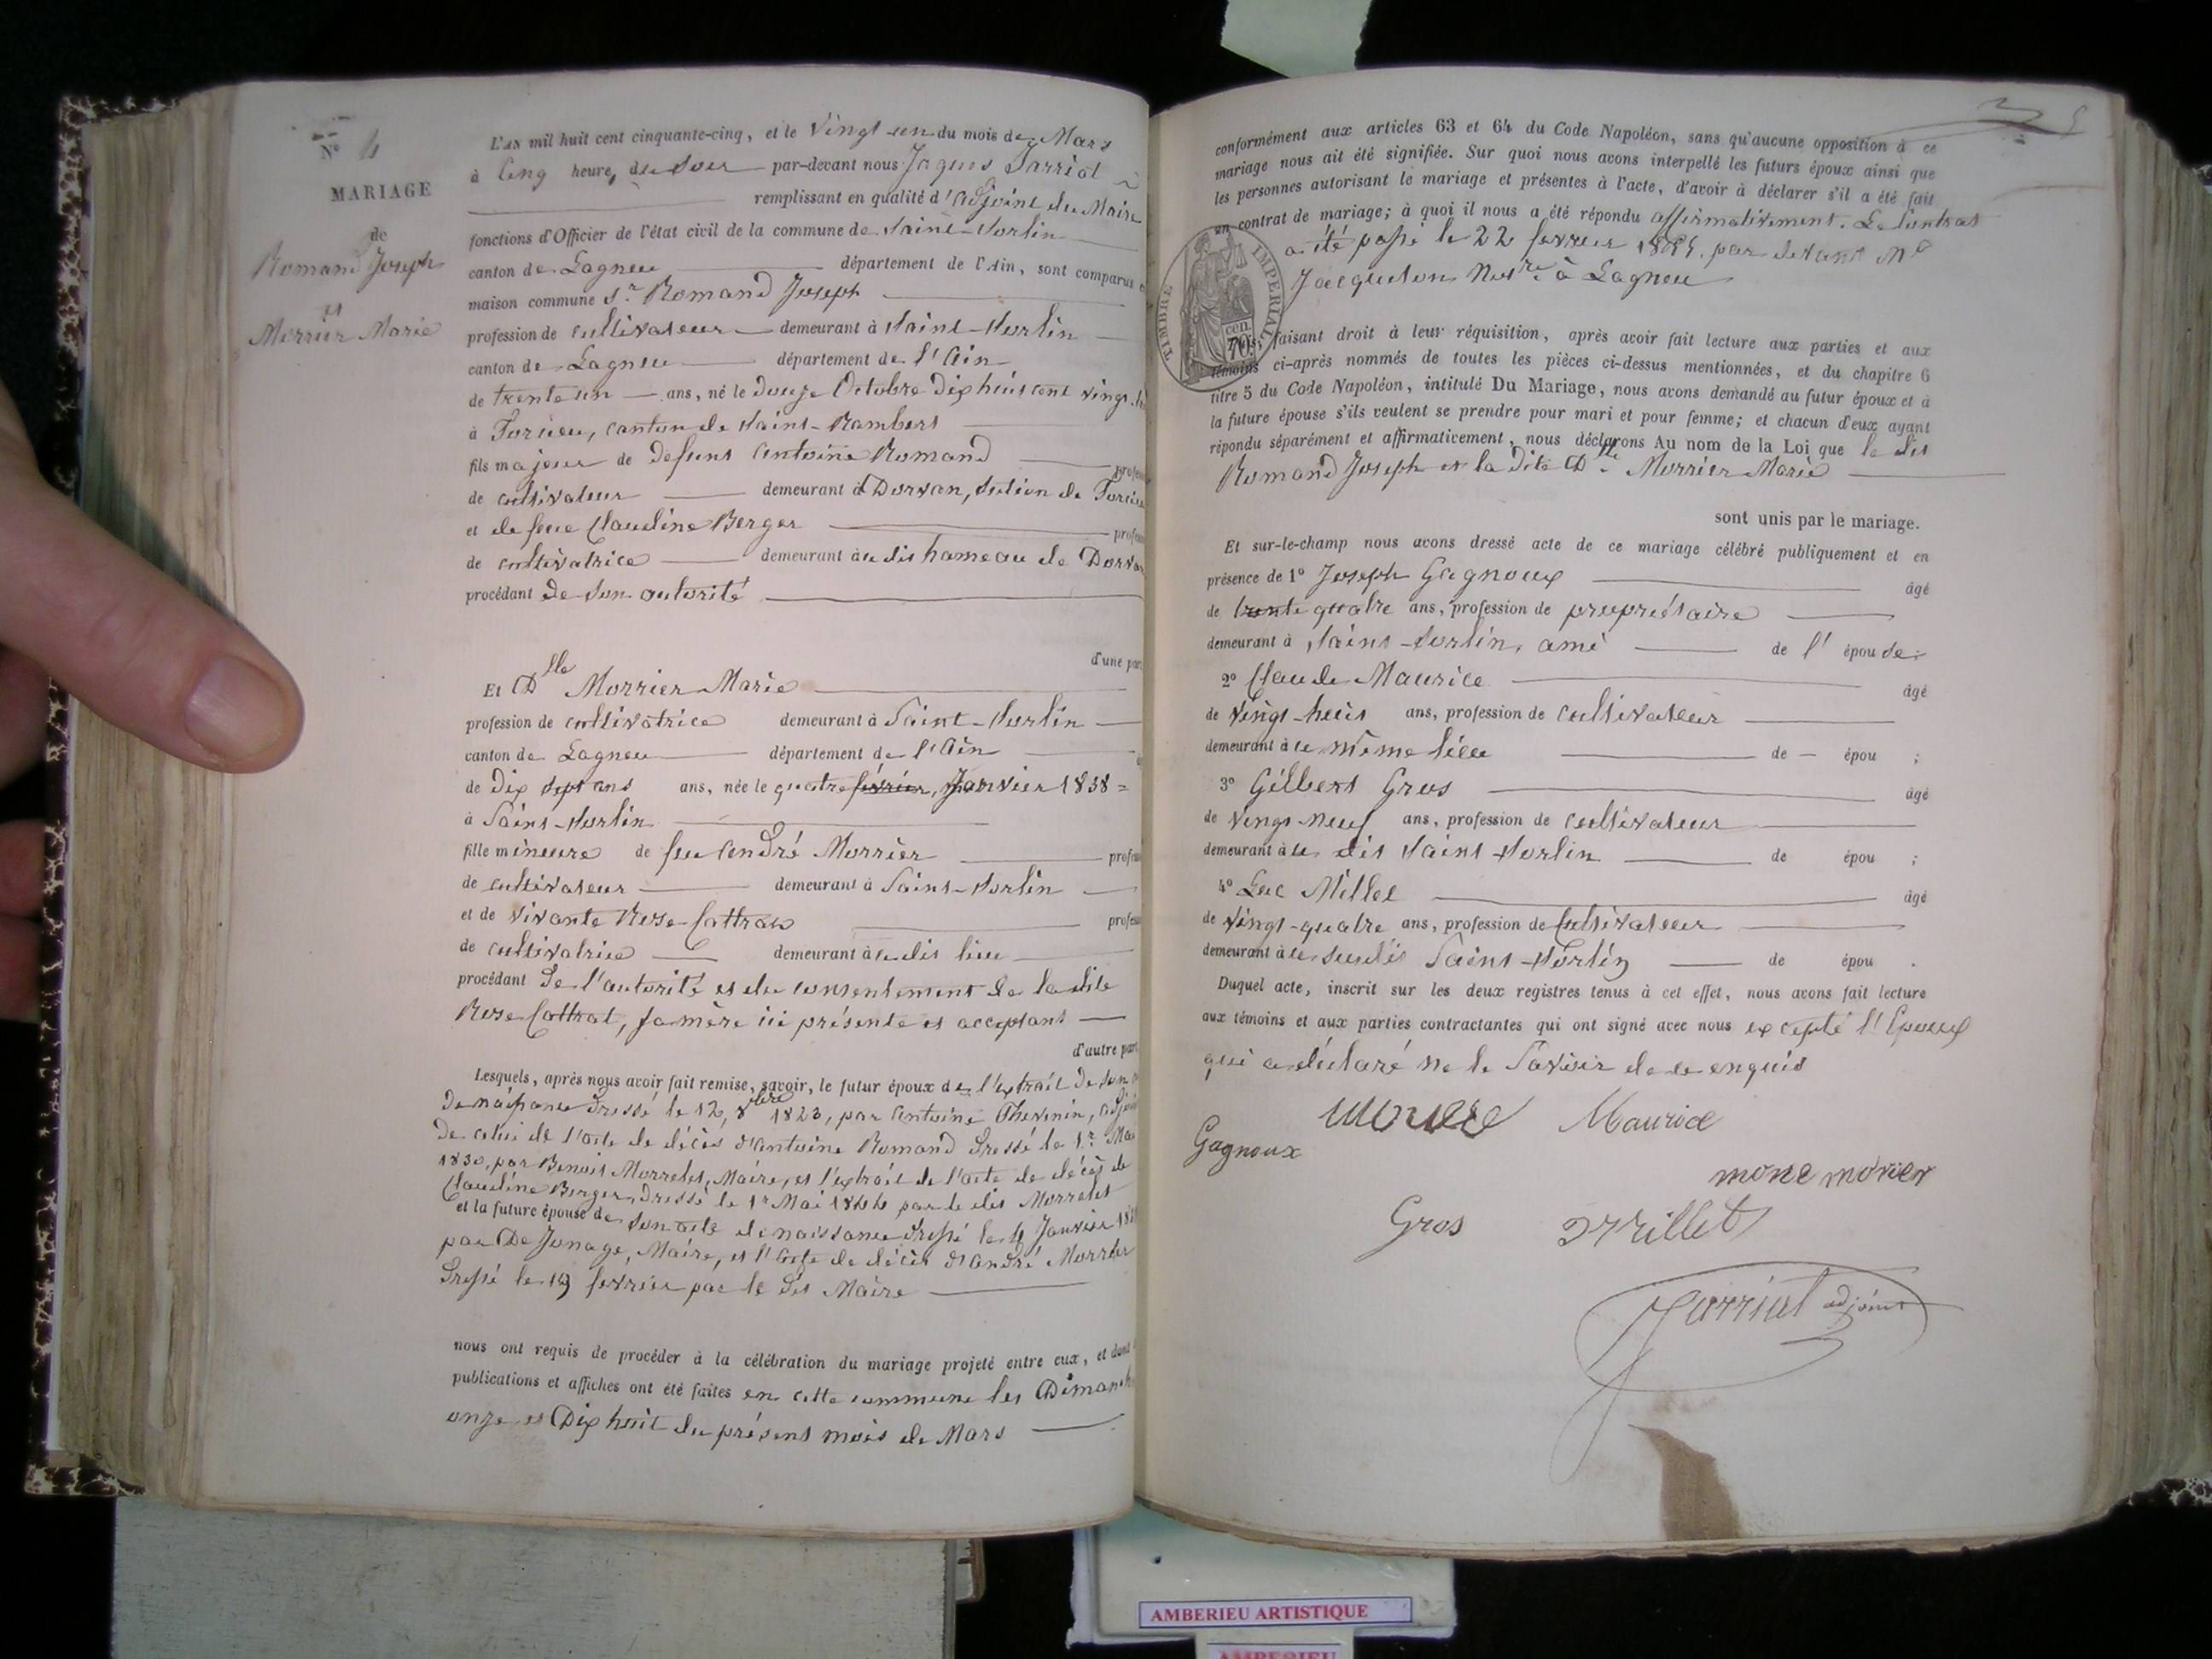 N° 4
MARIAGE
de
Romand Joseph
et
Morrier Marie
L'an mil huit cent cinquante-cinq, et le Vingt-un du mois de Mars
à Cinq heure, du Soir par-devant nous Jaques Sarriot
remplissant en qualité d'adjoint du Maire
fonctions d'Officier de l'état civil de la commune de Saint-Sorlin
canton de Lagneu département de l'Ain, sont comparus
maison commune Sr Romand Joseph
profession de cultivateur demeurant à Saint-Sorlin
canton de Lagneu département de l'Ain
de trente un ans, né le douze Octobre Dix huit cent vingt
à Torcieu, canton de Saint-Rambert
fils majeur de defunt Antoine Romand
de cultivateur demeurant à Dorvan, Section de Torcieu
et de feue Claudine Berger
de cultivatrice demeurant au dit hameau de Dorvan
procédant de son autorité
d'une part
Et Dlle Morrier Marie
profession de cultivatrice demeurant à Saint-Sorlin
canton de Lagneu département de l'Ain
de Dix Sept ans ans, née le quatre février, Janvier 1838 =
à Saint-Sorlin
fille mineure de feu André Morrier
de cultivateur demeurant à Saint-Sorlin
et de vivante Rose Cottraz
de cultivatrice demeurant au dit lieu
procédant de l'autorité et du consentement de la dite
Rose Cottrat, sa mère ici présente et acceptant
d'autre part
Lesquels, après nous avoir fait remise, savoir, le futur époux de l'extrait de son
de naissance dressé le 12, 8bre 1823, par Antoine Thevenin, adjoint
de celui de l'acte de décès d'Antoine Romand dressé le 1r Mai
1830, par Benoit Morrelet, Maire, et l'extrait de l'acte de décès de
Claudine Berger dressé le 1r Mai 1844 par le dit Morrelet
et la future épouse de son acte de naissance dressé le 4 Janvier
par De Jonage, Maire, et l'acte de décès d'André Morrier
dressé le 19 fevrier par le dit Maire
nous ont requis de procéder à la célébration du mariage projeté entre eux, et dont
publications et affiches ont été faites en cette commune les Dimanche
onze et Dix huit du présent mois de Mars
conformément aux articles 63 et 64 du Code Napoléon, sans qu'aucune opposition à ce
mariage nous ait été signifiée. Sur quoi nous avons interpellé les futurs époux ainsi que
les personnes autorisant le mariage et présentes à l'acte, d'avoir à déclarer s'il a été fait
un contrat de mariage; à quoi il nous a été répondu affirmativement. Le Contrat
a été passé le 22 fevrier 1855. par devant Me
Jacquelon Notre à Lagneu
TIMBRE IMPERIAL
cen.
70.
faisant droit à leur réquisition, après avoir fait lecture aux parties et aux
témoins ci-après nommés de toutes les pièces ci-dessus mentionnées, et du chapitre 6
titre 5 du Code Napoléon, intitulé Du Mariage, nous avons demandé au futur époux et à
la future épouse s'ils veulent se prendre pour mari et pour femme; et chacun d'eux ayant
répondu séparément et affirmativement, nous déclarons Au nom de la Loi que le dit
Romand Joseph et la dite Dlle Morrier Marie
sont unis par le mariage.
Et sur-le-champ nous avons dressé acte de ce mariage célébré publiquement et en
présence de 1° Joseph Gagnoux âgé
de trente quatre ans, profession de propriétaire
demeurant à Saint-Sorlin, ami de l'épouse;
2° Claude Maurice âgé
de vingt-huit ans, profession de cultivateur
demeurant au même lieu de — épou ;
3° Gilbert Gros âgé
de vingt-neuf ans, profession de cultivateur
demeurant au dit Saint-Sorlin de épou ;
4° Luc Millet âgé
de vingt-quatre ans, profession de Cultivateur
demeurant au susdit Saint-Sorlin de épou .
Duquel acte, inscrit sur les deux registres tenus à cet effet, nous avons fait lecture
aux témoins et aux parties contractantes qui ont signé avec nous excepté l'Epoux
qui a déclaré ne le Savoir de ce enquis
Maurice
Gagnoux
mone morier
Gros Millet
Sarriot adjoint
AMBERIEU ARTISTIQUE
AMBERIEU